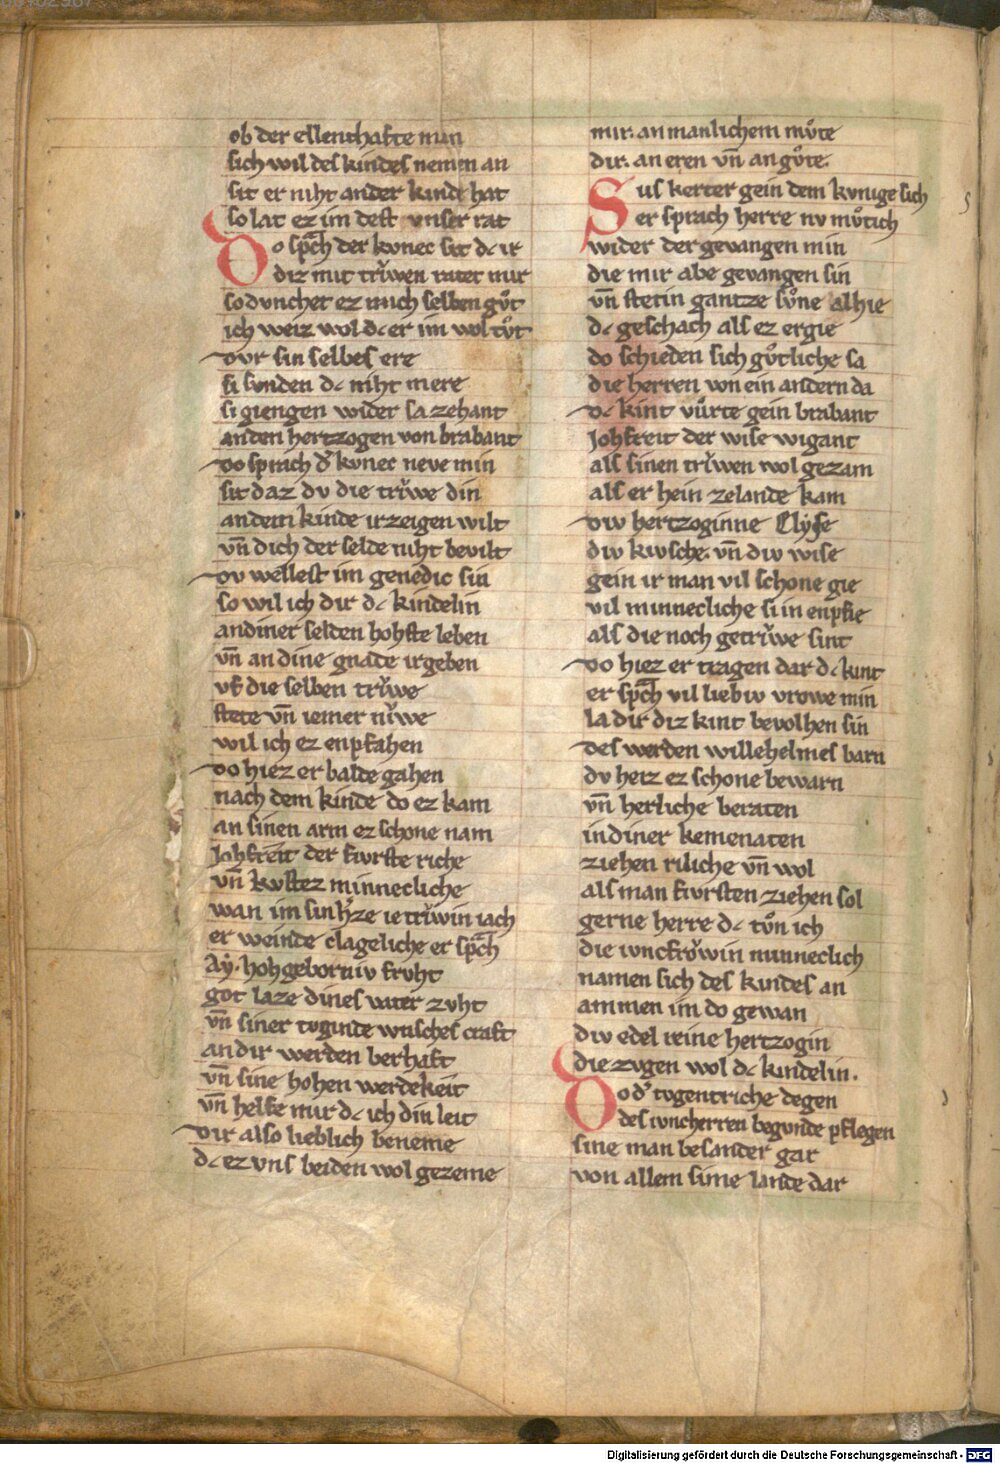 ob der ellenthafte man
sich wil des kindes nemen an
sit er niht ander kinde hat
so lat ez im dest unser rat
Do sp̄ch der kvnec sit dc ir
diz mit trv̍wen ratet mir
so dvnchet ez mich selben gůt
ich weiz wol dc er im wol tůt
dvr sin selbes ere
si svnden dc niht mere
si giengen wider sa zehant
an den hertzogen von brabant
do sprach d̍ kvnec neve min
sit daz dv die trv̍we din
an dem kinde irzeigen wilt
vn̄ dich der selde niht bevilt
dv wellest im genedic sin
so wil ich dir dc kindelin
an diner selden hohste leben
vn̄ an dine gnade irgeben
vf die selben trv̍we
stete vn̄ iemer nv̍we
wil ich ez enpfahen
do hiez er balde gahen
nach dem kinde do ez kam
an sinen arm ez schone nam
Johfreit der fivrste riche
vn̄ kvstez minnecliche
wan im sin h̍ze ie trv̍win iach
er weinde clageliche er sp̄ch
Aẏ. hohgeborniv frvht
got laze dines vater zvht
vn̄ siner tvginde wnsches craft
an dir werden berhaft
vn̄ sine hohen werdekeit
vn̄ helfe mir dc ich din leit
dir also lieblich beneme
dc ez vns beiden wol gezeme
mir. an manlichem mv̊te
dir. an eren vn̄ an gv̊te.
Sus kerter gein dem kvnige sich
er sprach herre nv mv̊tich
wider der gevangen min
die mir abe gevangen sin
vn̄ stetin gantze sv̊ne alhie
dc geschach als ez ergie
do schieden sich gv̊tliche sa
die herren von ein andern da
dc kint vůrte gein brabant
Johfreit der wise wigant
als sinen trv̍wen wol gezam
als er hein zelande kam
div hertzoginne Elyse
div kivsche. vn̄ div wise
gein ir man vil schone gie
vil minnecliche si in enpfie
als die noch getrv̍we sint
do hiez er tragen dar dc kint
er sp̄ch vil liebiv vrowe min
la dir diz kint bevolhen sin
des werden willehelmes barn
dv heiz ez schone bewarn
vn̄ herliche beraten
in diner kemenaten
ziehen riliche vn̄ wol
als man fivrsten ziehen sol
gerne herre dc tůn ich
die ivncfrǒwin minneclich
namen sich des kindes an
ammen im do gewan
div edel reine hertzogin
die zvgen wol dc kindelin.
Do d̍ tvgentriche degen
des ivncherren begvnde pflegen
sine man besander gar
von allem sime lande dar
Digitalisierung gefördert durch die Deutsche Forschungsgemeinschaft - DFG